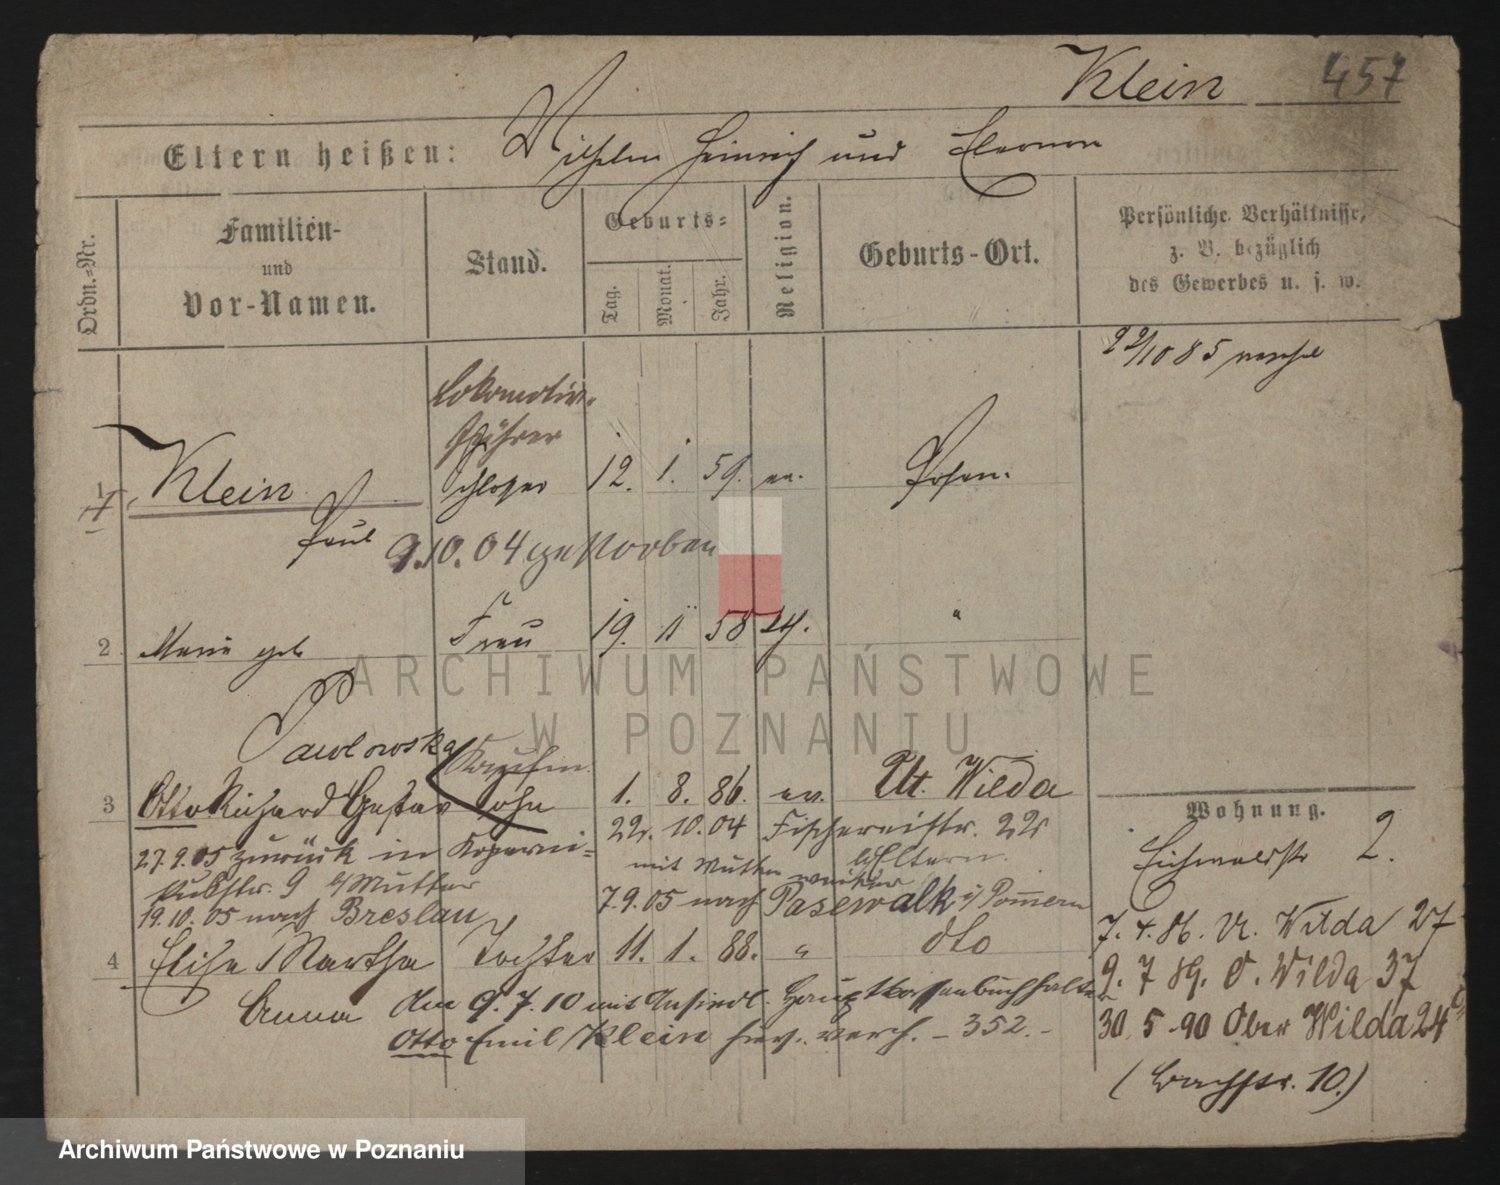 Klein 457
Eltern heißen: Wilhelm Heinrich und Eleonore
Ordn.=Nr.
Familien-
und
Vor-Namen.
Stand.
Geburts=
Tag.
Monat.
Jahr.
Religion.
Geburts-Ort.
Persönliche Verhältnisse,
z. B. bezüglich
des Gewerbes u. s. w.
22/10 85
Lokomotiv-
führer
1 Klein Schlosser 12. 1. 59. ev. Posen.
Paul 9.10.04 gestorben
2 Marie geb Frau 19. 11 58 "
Pawlowska
Kaufm.
3 Otto Richard Gustav Sohn 1. 8. 86. ev. Ut. Wilda
22. 10. 04 Fischereistr. 22
27.9.05 zurück in Koperni=
kusstr. 9 b/Mutter
mit Mutter
b/Eltern.
7.9.05 nach Pasewalk i/Pommern
19.10.05 nach Breslau
4 Elise Martha Tochter 11. 1. 88. " dto
Anna den 9.7.10 mit Ansiedl. Hauptkassenbuchhalter
Otto Emil Klein hier. verh. - 352.-
Wohnung.
Eichwaldstr 2.
7. 4. 86. Ut. Wilda 27
9. 7 89. O. Wilda 37
30. 5. 90 Ober Wilda 24
(Bachstr. 10.)
ARCHIWUM PAŃSTWOWE
W POZNANIU
Archiwum Państwowe w Poznaniu